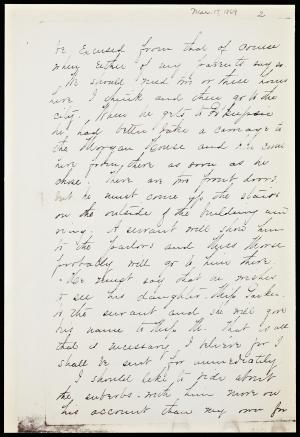 Mar. 17, 1869 2
be excused from that of course
when either of my parents say so
He should need two or three hours
here I think and then go to the
city. When he gets to Po'keepsie
he had better take a carriage to
the Morgan House and come
here from there as soon as he
chose. There are two front doors
but he must come up the stairs
on the outside of the building
A servant will show him
to the Parlors and Miss Morse
probably will go to him there.
He must say that he wishes
to see his daughter Miss
to the servant and she will give
his name to Miss M. That is all
that is necessary I believe for I
shall be sent for immediately.
I should like to ride about
the suburbs with him more on
his account than my own for